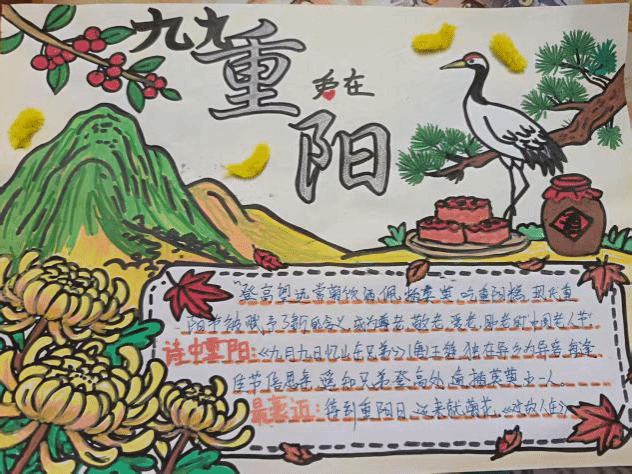 九九
重
爱在
阳
酒
"登高望远赏菊饮酒佩插茱萸,吃重阳糕,现代重
阳节被赋予了新的含义,成为尊老、敬老、爱老、助老的中国老人节"
诗中重阳:《九月九日忆山东兄弟》(唐)王维 独在异乡为异客,每逢
佳节倍思亲,遥知兄弟登高处,遍插茱萸少一人。
待到重阳日,还来 菊花。